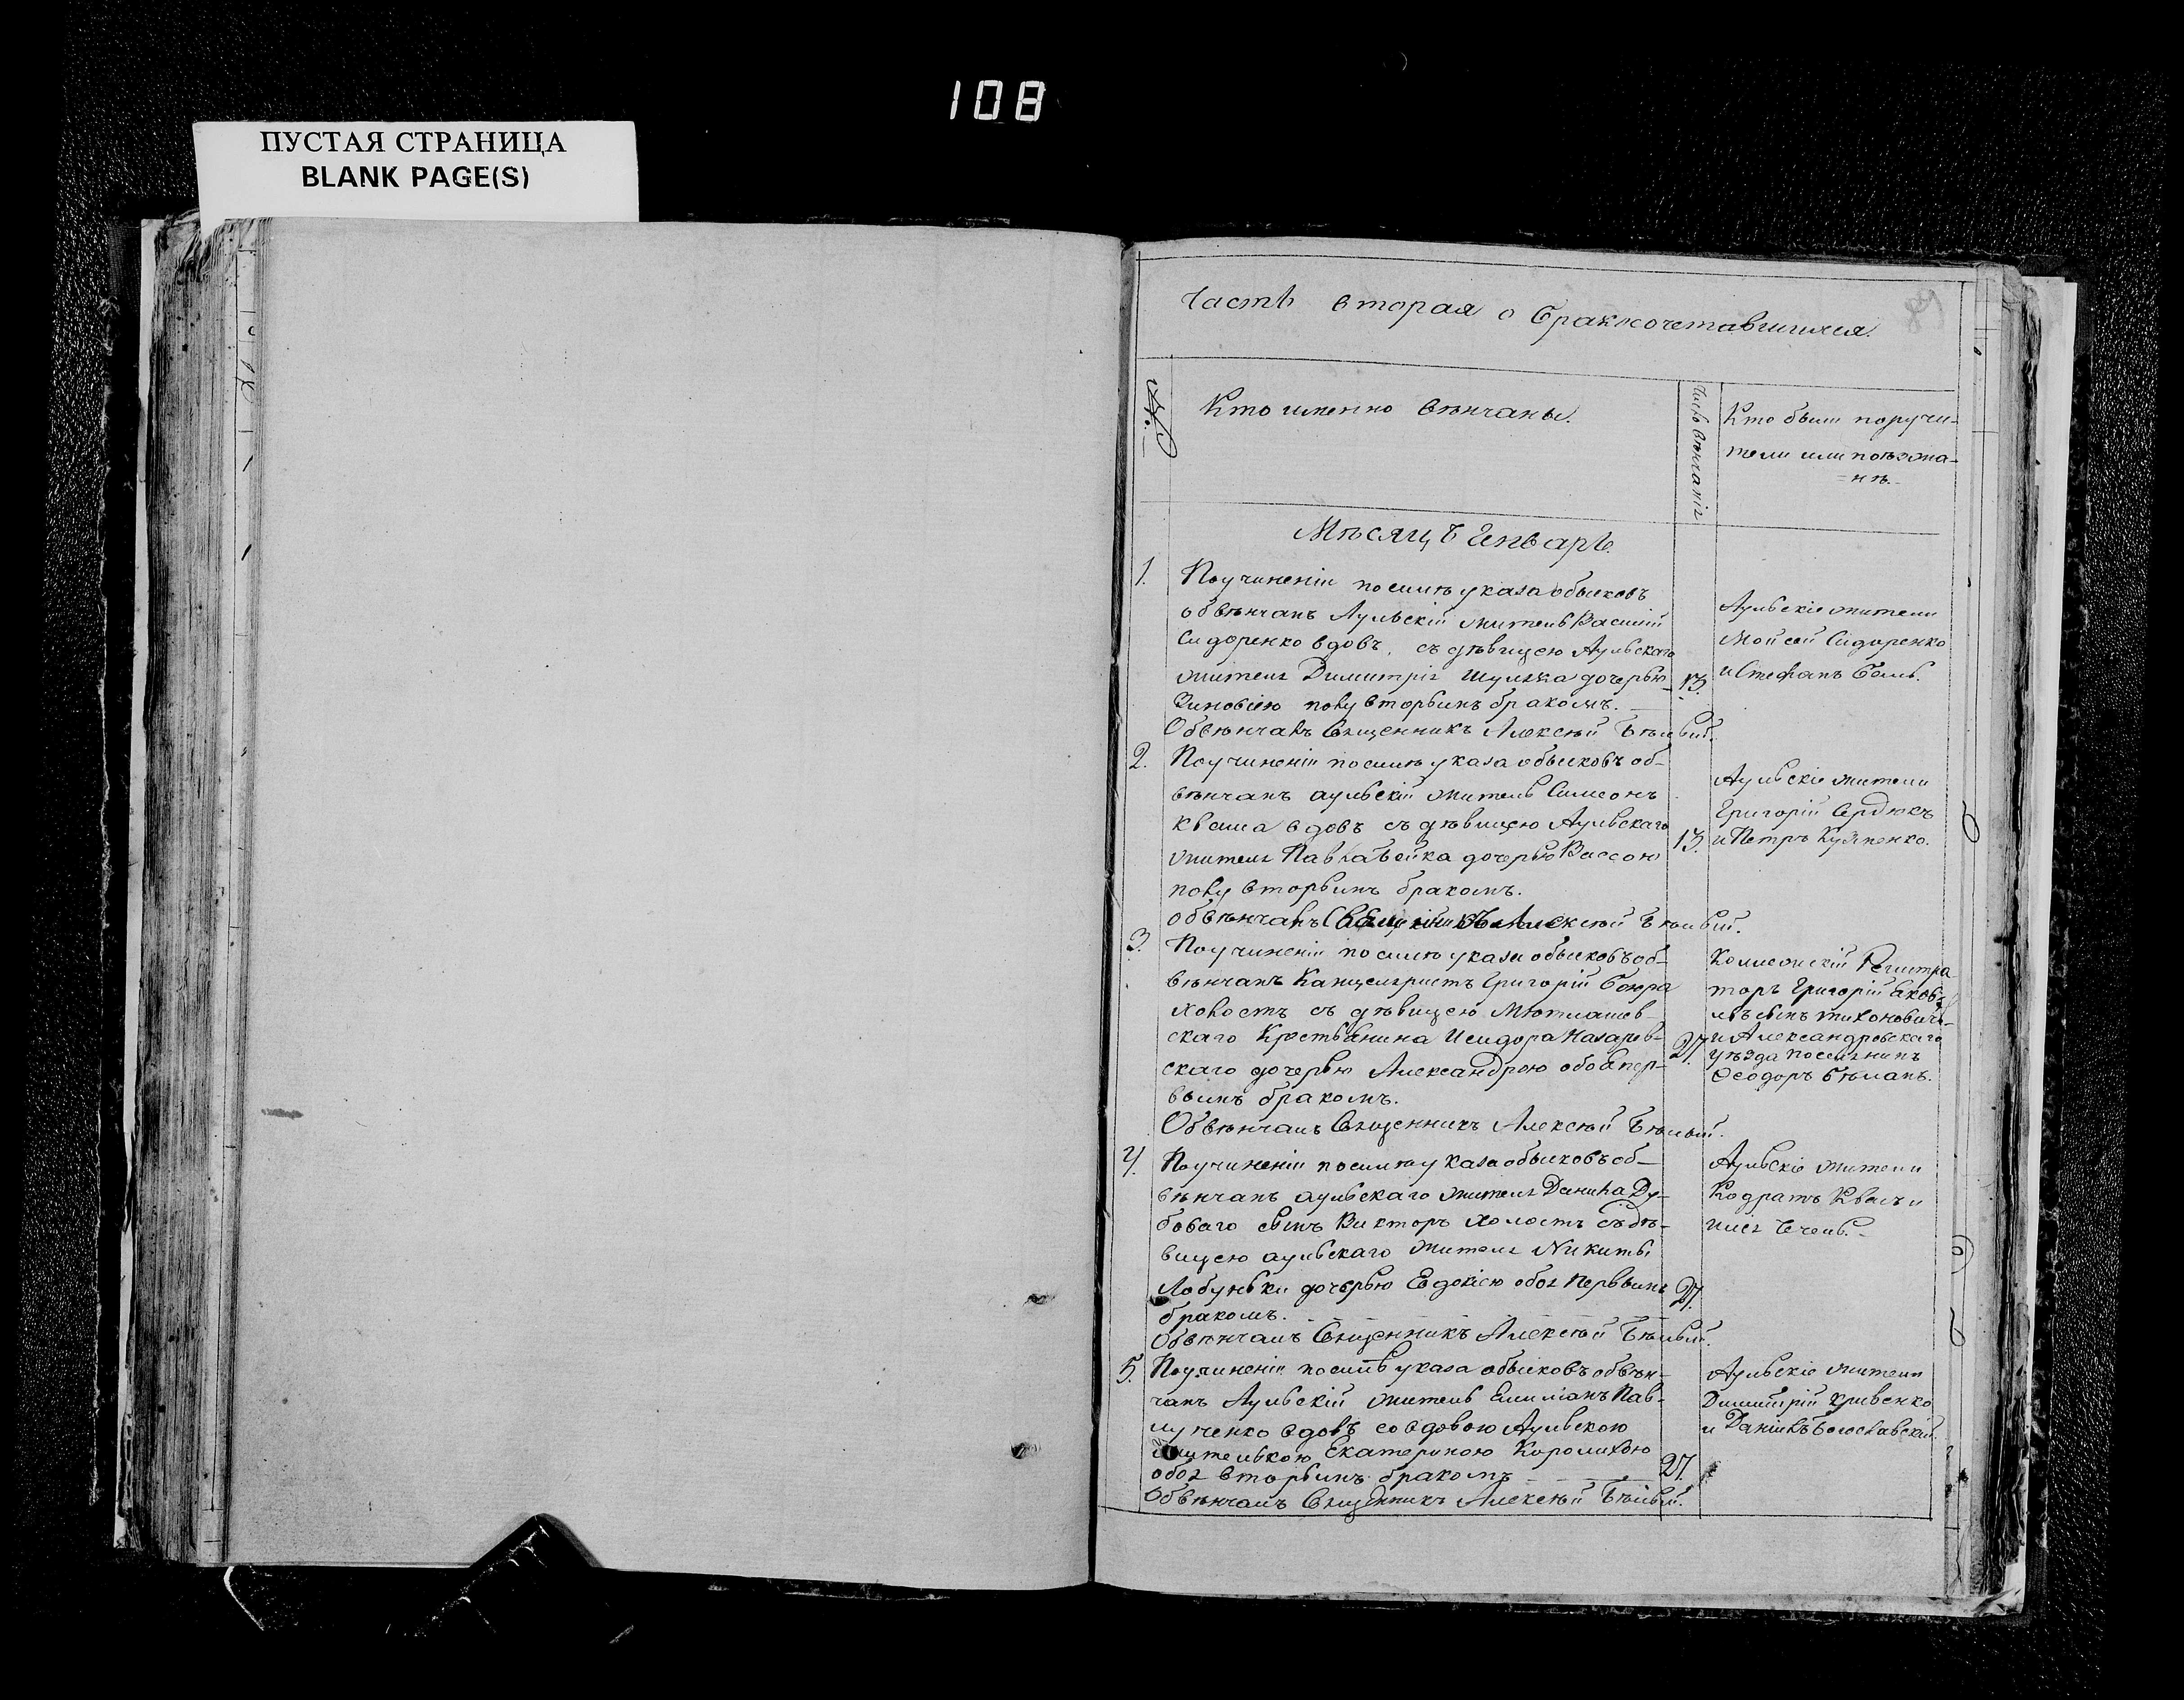 108
ПУСТАЯ СТРАНИЦА
BLANK PAGE(S)
Часть вторая о бракосочетавшихся.
№
Кто именно вѣнчаны.
Число вѣнчанія
Кто были поручи-
тели или поѣзжа-
=нѣ.
Мѣсяцъ Генварь
1.
По учиненіи по силѣ указа обысковъ
обвѣнчанъ Аульскій житель Василій
Сидоренко вдовъ, съ дѣвицею Аульскаго
жителя Димитрія Шуляка дочерью
Зиновіею пову вторымъ бракомъ.
Обвѣнчалъ Священникъ Алексѣй Бѣлый.
13.
Аульскіе жители
Мойсей Сидоренко
и Стефанъ Бѣлый.
2.
По учиненіи по силѣ указа обысковъ об-
вѣнчанъ аульскій житель Симеонъ
Кваша вдовъ съ дѣвицею Аульскаго
жителя Павла Бейка дочерью Вассою
пову вторымъ бракомъ.
обвѣнчалъ Священникъ Алексѣй Бѣлый.
13.
Аульскіе жители
Григорій Сердюкъ
и Петръ Кузменко.
3.
По учиненіи по силѣ указа обысковъ об-
вѣнчанъ Канцеляристъ Григорій Бокра
холостъ съ дѣвицею
скаго Крестьянина Исидора Назарев-
скаго дочерью Александрою обоя пер-
вымъ бракомъ.
Обвѣнчалъ Священникъ Алексѣй Бѣлый.
27.
Колежскій Регистра
торъ Григорій Яков
левъ сынъ Тихоновичъ
и Александровскаго
уѣзда поселянинъ
Ѳеодоръ Бѣланъ.
4.
По учиненіи по силѣ указа обысковъ об-
вѣнчанъ аульскаго жителя Данила Ду-
боваго сынъ Викторъ холостъ съ дѣ-
вицею аульскаго жителя Никиты
Лобуньки дочерью Евдокіею обоя первымъ
бракомъ.
Обвѣнчалъ Священникъ Алексѣй Бѣлый.
27.
Аульскіе жители
Кодратъ Квачъ и
Илія
5.
По учиненіи по силѣ указа обысковъ обвѣн-
чанъ Аульскій житель Емиліанъ Пав-
лученко вдовъ со вдовою Аульскою
жителькою Екатериною
обоя вторымъ бракомъ
Обвѣнчалъ Священникъ Алексѣй Бѣлый.
27.
Аульскіе жители
Димитрій Кривенко
и Даніилъ Богославскій.